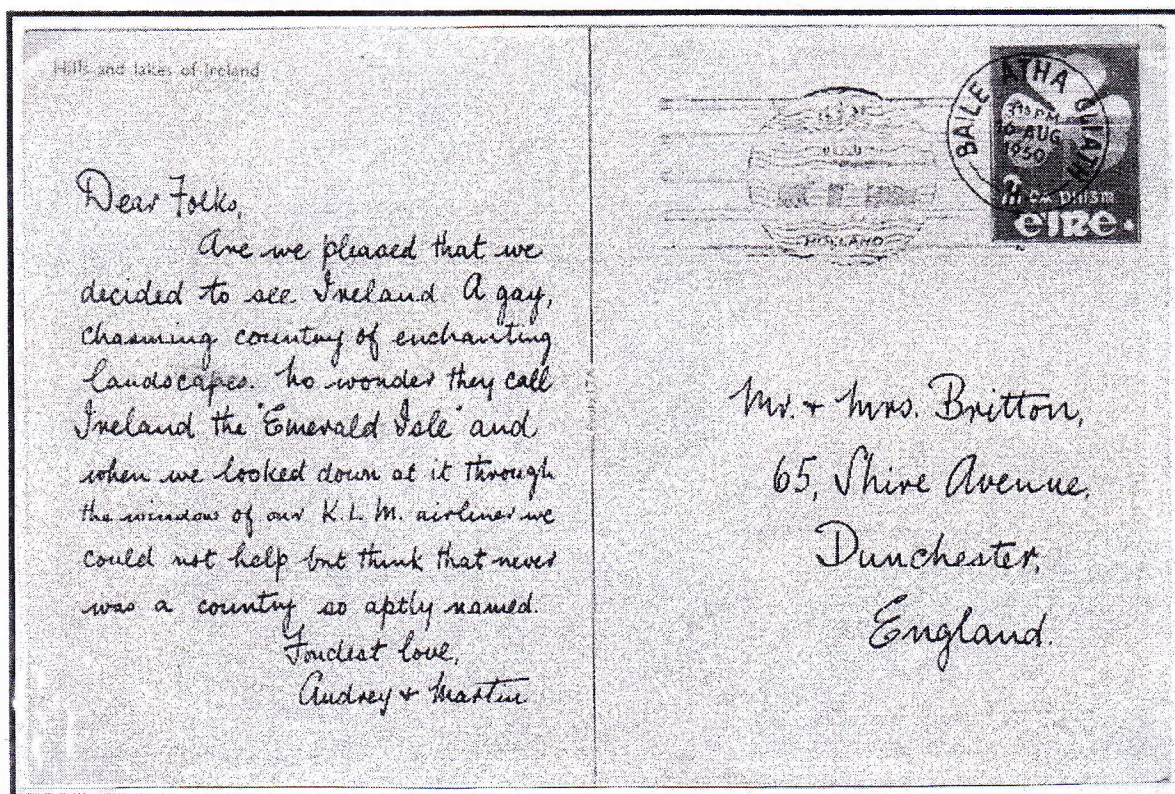 Hills and lakes of Ireland
Dear Folks,
Are we pleased that we
decided to see Ireland A gay,
charming country of enchanting
landscapes. No wonder they call
Ireland the "Emerald Isle" and
when we looked down at it through
the window of our K.L.M. airliner we
could not help but think that never
was a country so aptly named.
Fondest love,
Audrey & Martin
HOLLAND
BAILE ATHA CLIATH
PM
AUG
1950
EIRE.
Mr. & Mrs. Britton,
65, Shire Avenue,
Dunchester,
England.